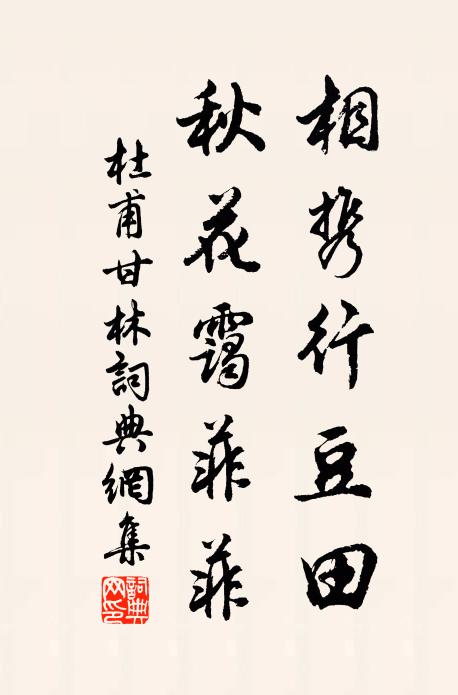 相携行豆田
秋花霭菲菲
杜甫甘林詞典網集
詞典网印